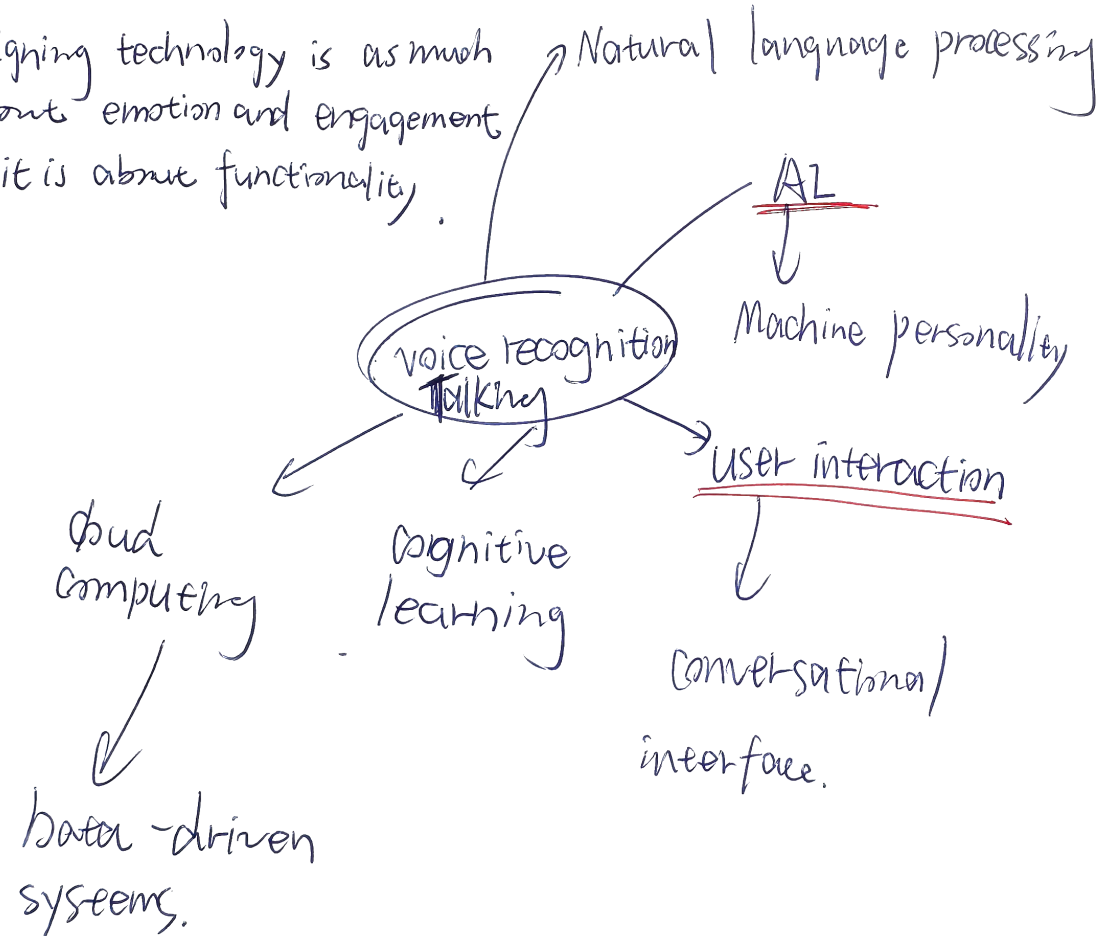 gning technology is as much
out emotion and engagement
it is about functionality.
Natural language processing
AI
Machine personality
voice recognition
Talking
user interaction
cloud
computing
cognitive
learning
conversational
interface.
Data-driven
systeems.